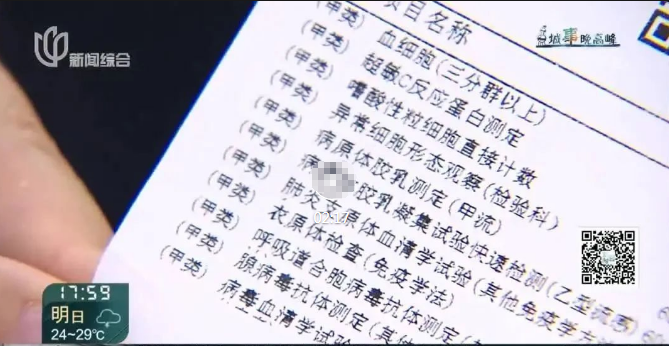 新闻综合
城事晚高峰
项目名称
(甲类) 血细胞(三分群以上)
(甲类) 超敏C反应蛋白测定
(甲类) 嗜酸性粒细胞直接计数
(甲类) 异常细胞形态观察(检验科)
(甲类) 病原体胶乳测定(甲流)
(甲类) 病 胶乳凝集试验快速检测(乙型流感)
(甲类) 肺炎支原体血清学试验(其他免疫学方法
(甲类) 衣原体检查(免疫学法)
(甲类) 呼吸道合胞病毒抗体测定(
腺病毒抗体测定(其他
病毒血清学试验
60
02:17
17:59
明日
24~29℃